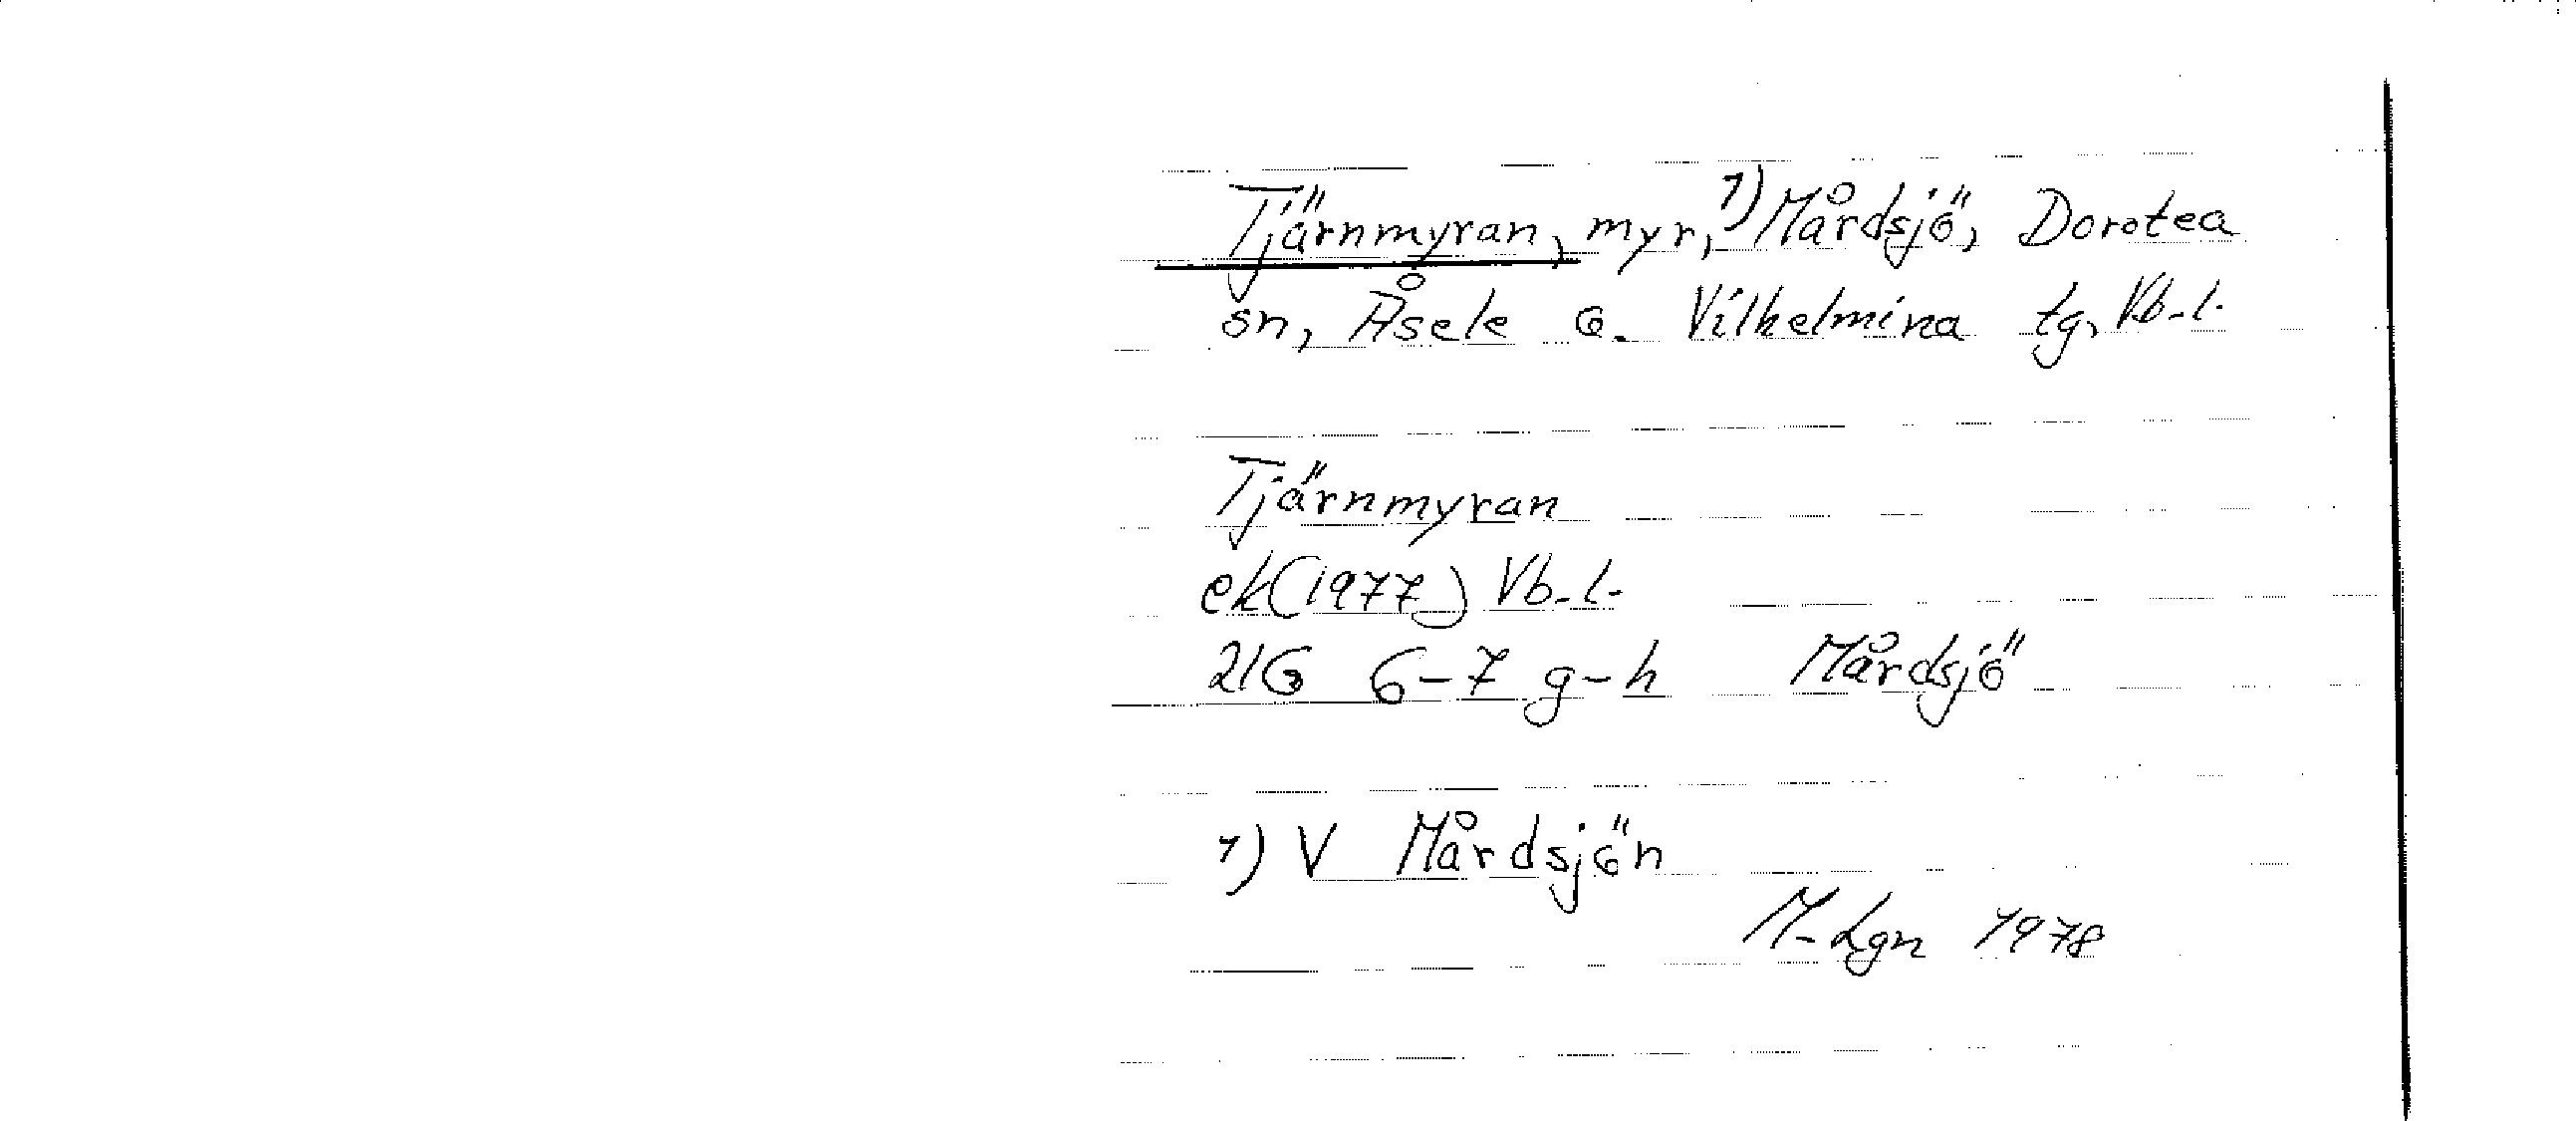 Tjärnmyran, myr, 1) Mårdsjö, Dorotea
sn, Åsele o. Vilhelmina tg, Vb.l.
Tjärnmyran
ek(1977) Vb.l.
21G 6-7 g-h Mårdsjö
1) V Mårdsjön
M-Lgn 1978